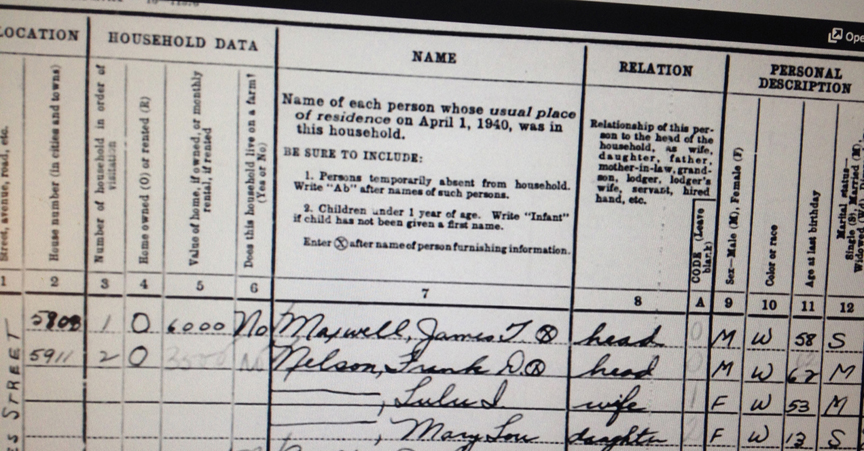 Ope
LOCATION HOUSEHOLD DATA NAME RELATION PERSONAL DESCRIPTION
Street, avenue, road, etc.
House number (in cities and towns)
Number of household in order of visitation
Home owned (O) or rented (R)
Value of home, if owned, or monthly rental, if rented
Does this household live on a farm? (Yes or No)
Name of each person whose usual place
of residence on April 1, 1940, was in
this household.
BE SURE TO INCLUDE:
1. Persons temporarily absent from household.
Write "Ab" after names of such persons.
2. Children under 1 year of age. Write "Infant"
if child has not been given a first name.
Enter ⓧ after name of person furnishing information.
Relationship of this per-
son to the head of the
household, as wife,
daughter, father,
mother-in-law, grand-
son, lodger, lodger's
wife, servant, hired
hand, etc.
CODE (Leave blank)
Sex—Male (M), Female (F)
Color or race
Age at last birthday
Marital status—
Single (S), Married (M),
1 2 3 4 5 6 7 8 A 9 10 11 12
1 O 6000 No Maxwell, James T ⓧ head 0 M W 58 S
5911 2 O Nelson, Frank D. ⓧ head M W 62 M
, Lulu I wife 1 F W 53 M
, Mary Lou daughter 2 F W S
STREET